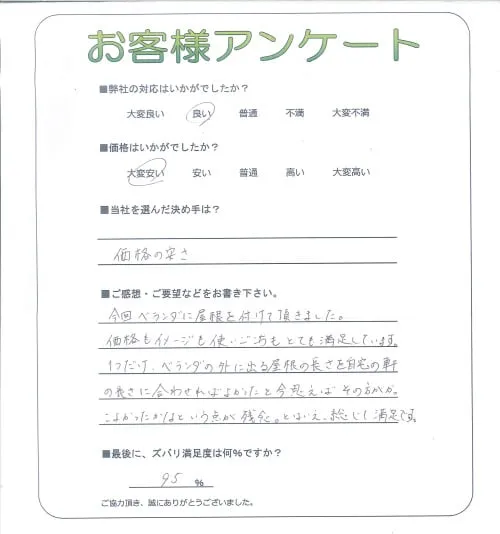 お客様アンケート
■弊社の対応はいかがでしたか？
大変良い　良い　普通　不満　大変不満
■価格はいかがでしたか？
大変安い　安い　普通　高い　大変高い
■当社を選んだ決め手は？
価格の安さ
■ご感想・ご要望などをお書き下さい。
今回ベランダに屋根を付けて頂きました。
価格もイメージも使いごこちもとても満足しています。
1つだけ、ベランダの外に出る屋根の長さを自宅の軒
の長さに合わせればよかったと今思えばその方がか。
こよかったかなという点が残念。とはいえ、総じて満足です。
■最後に、ズバリ満足度は何％ですか？
95 ％
ご協力頂き、誠にありがとうございました。